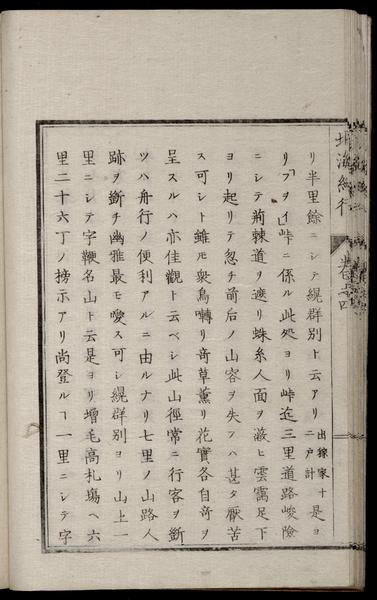 北海紀行 巻之四
リ半里餘ニシテ緄群別ト云アリ出稼家十二戸計是ヨ
リ「プヲイ」峠ニ係ル此処ヨリ峠迄三里道路峻險
ニシテ荊棘道ヲ遮リ蛛糸人面ヲ蔽ヒ雲霭足下
ヨリ起リテ忽チ前后ノ山容ヲ失フハ甚タ厭苦
ス可シト雖モ衆鳥囀リ竒草薫リ花實各自竒ヲ
呈スルハ亦佳觀ト云ベシ此山徑常ニ行客ヲ斷
ツハ舟行ノ便利アルニ由ルナリ七里ノ山路人
跡ヲ斷チ幽雅最モ愛ス可シ緄群別ヨリ山上一
里ニシテ字鞭名山ト云是ヨリ增毛高札塲ヘ六
里二十六丁ノ榜示アリ尚登ルヿ一里ニシテ字